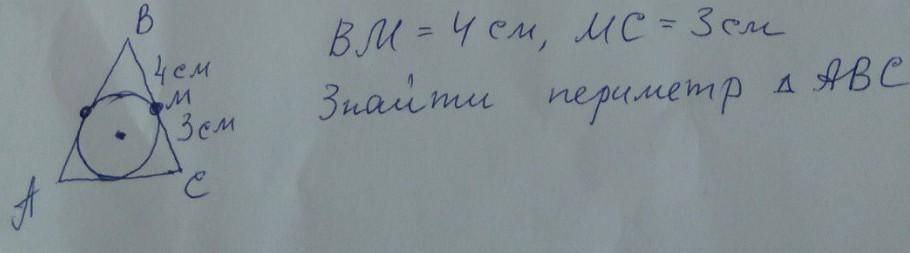 B
4 см
M
3 см
A
C
BM = 4 см, MC = 3 см
Знайти периметр △ ABC